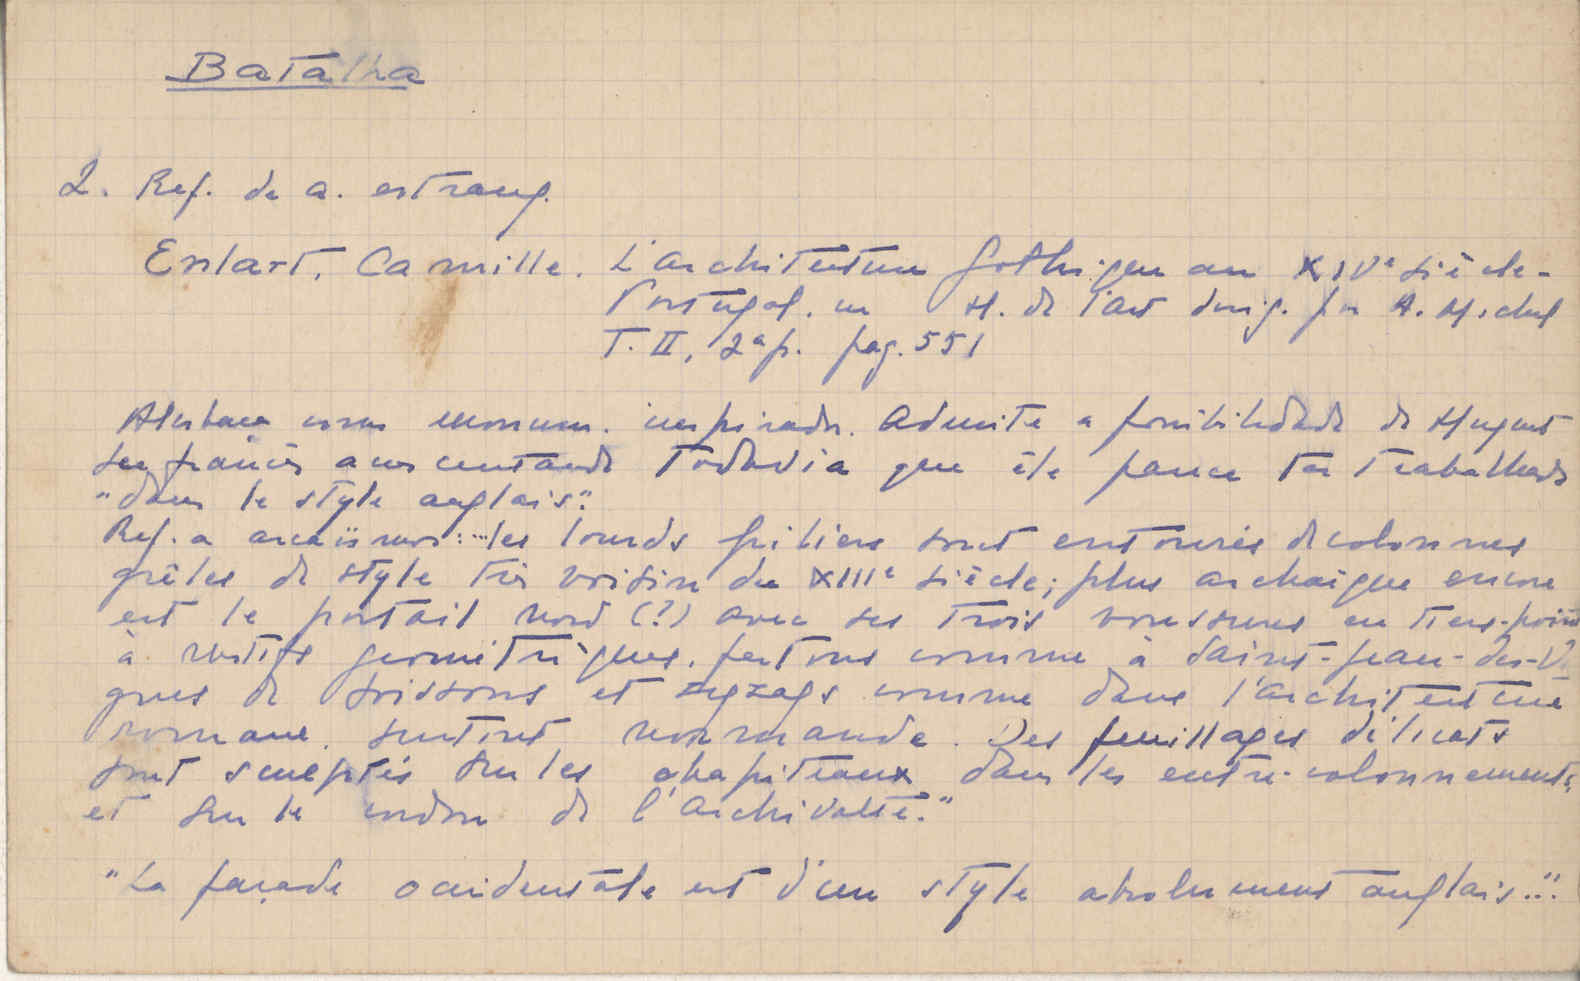 Batalha
2. Ref. de a. estrang.
Enlart, Camille. L'architecture gothique au XIVe siècle -
Portugal. in H. de l'art dirig. par A. Michel
T. II, 2ª p. pag. 551
como monum. inspirador. Admite a possibilidade de Huguet
ser francês acrescentando todavia que êle parece ter trabalhado
"dans le style anglais".
Ref. a arcaïsmos: "les lourds piliers sont entourés de colonnes
grêles de style très voisin du XIIIe siècle; plus archaïque encore
est le portail nord (?) avec ses trois voussures en tiers-point
à motifs géometriques. festons comme à Saint-Jean-des-Vi
gnes de Soissons et zigzags comme dans l'architecture
romane surtout normande. Des feuillages délicats
sont sculptés sur les chapiteaux dans les entre-colonnements,
et sur le cordon de l'archivolte."
"La façade occidentale est d'un style absolument anglais..."